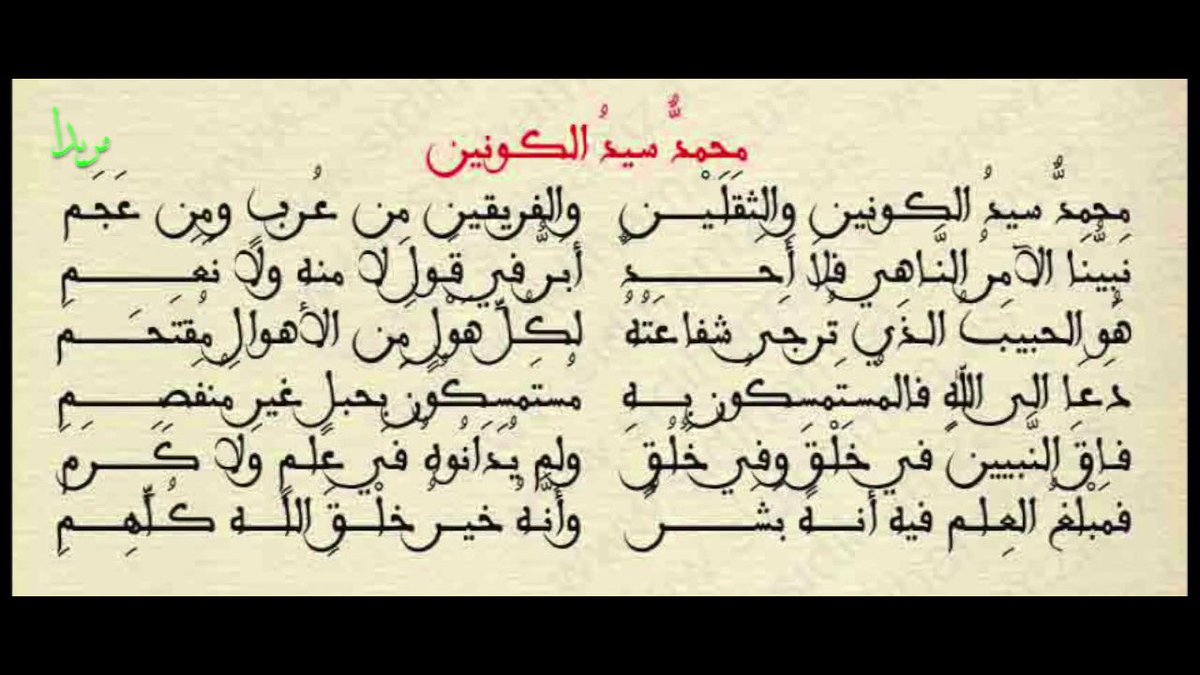 مريدا
محمدٌّ سيدُ الكونين
محمدٌّ سيدُ الكونين والثقَلَيْن والفريقين من عُرب ومن عَجَم
نبيُّنا الآمرُ النَّاهي فلا أَحد أبرُّ في قول لا منه ولا نعم
هُو الحبيب الذي ترجى شفاعَتُهُ لكلِّ هوْلٍ من الأهوال مقتحَم
دعا الى اللّه فالمستمسكون به مُستمسكون بحبلٍ غير منفصم
فاق النَّبيين في خَلْق وفي خُلُق ولم يُدَانُوهُ في علم ولا كَرم
فمبلغُ العِلم فيه أنه بشر وأنَّهُ خير خلْق اللَّه كُلِّهِم